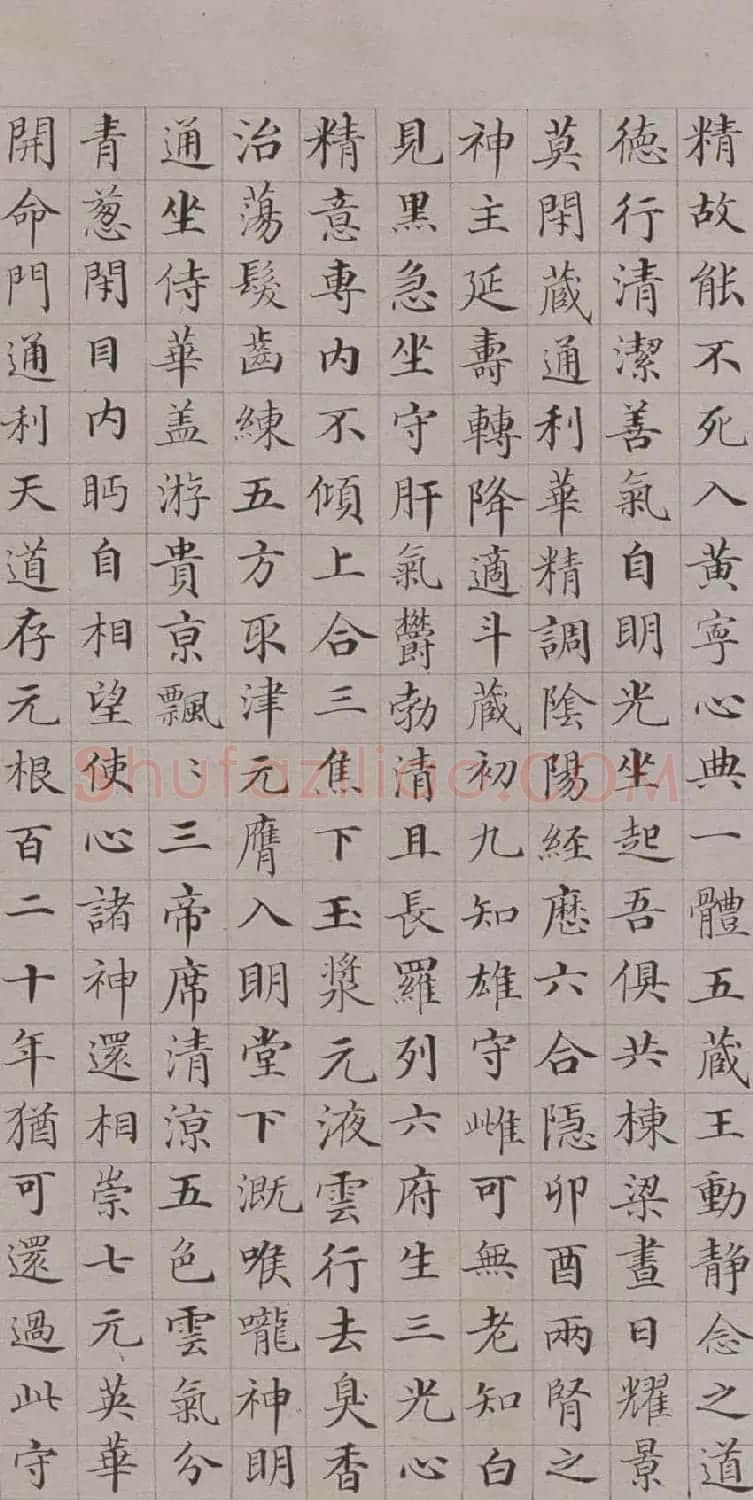 精故能不死入黄寧心典一體五蔵王動静念之道
德行清潔善氣自明光坐起吾俱共棟梁晝日耀景
莫閇蔵通利華精調陰陽経歷六合隠卯酉兩腎之
神主延壽轉降適斗蔵初九知雄守雌可無老知白
見黒急坐守肝氣欝勃清且長羅列六府生三光心
精意専内不傾上合三焦下玉漿元液雲行去臭香
治蕩髮齒練五方取津元膺入明堂下溉喉嚨神明
通坐侍華盖游貴亰飄〻三帝席清涼五色雲氣分
青葱閇目内眄自相望使心諸神還相崇七元英華
開命門通利天道存元根百二十年猶可還過此守
Shufaziliao.COM